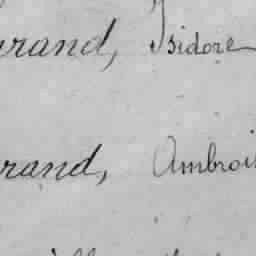 rand, Isidore
rand, Ambroi